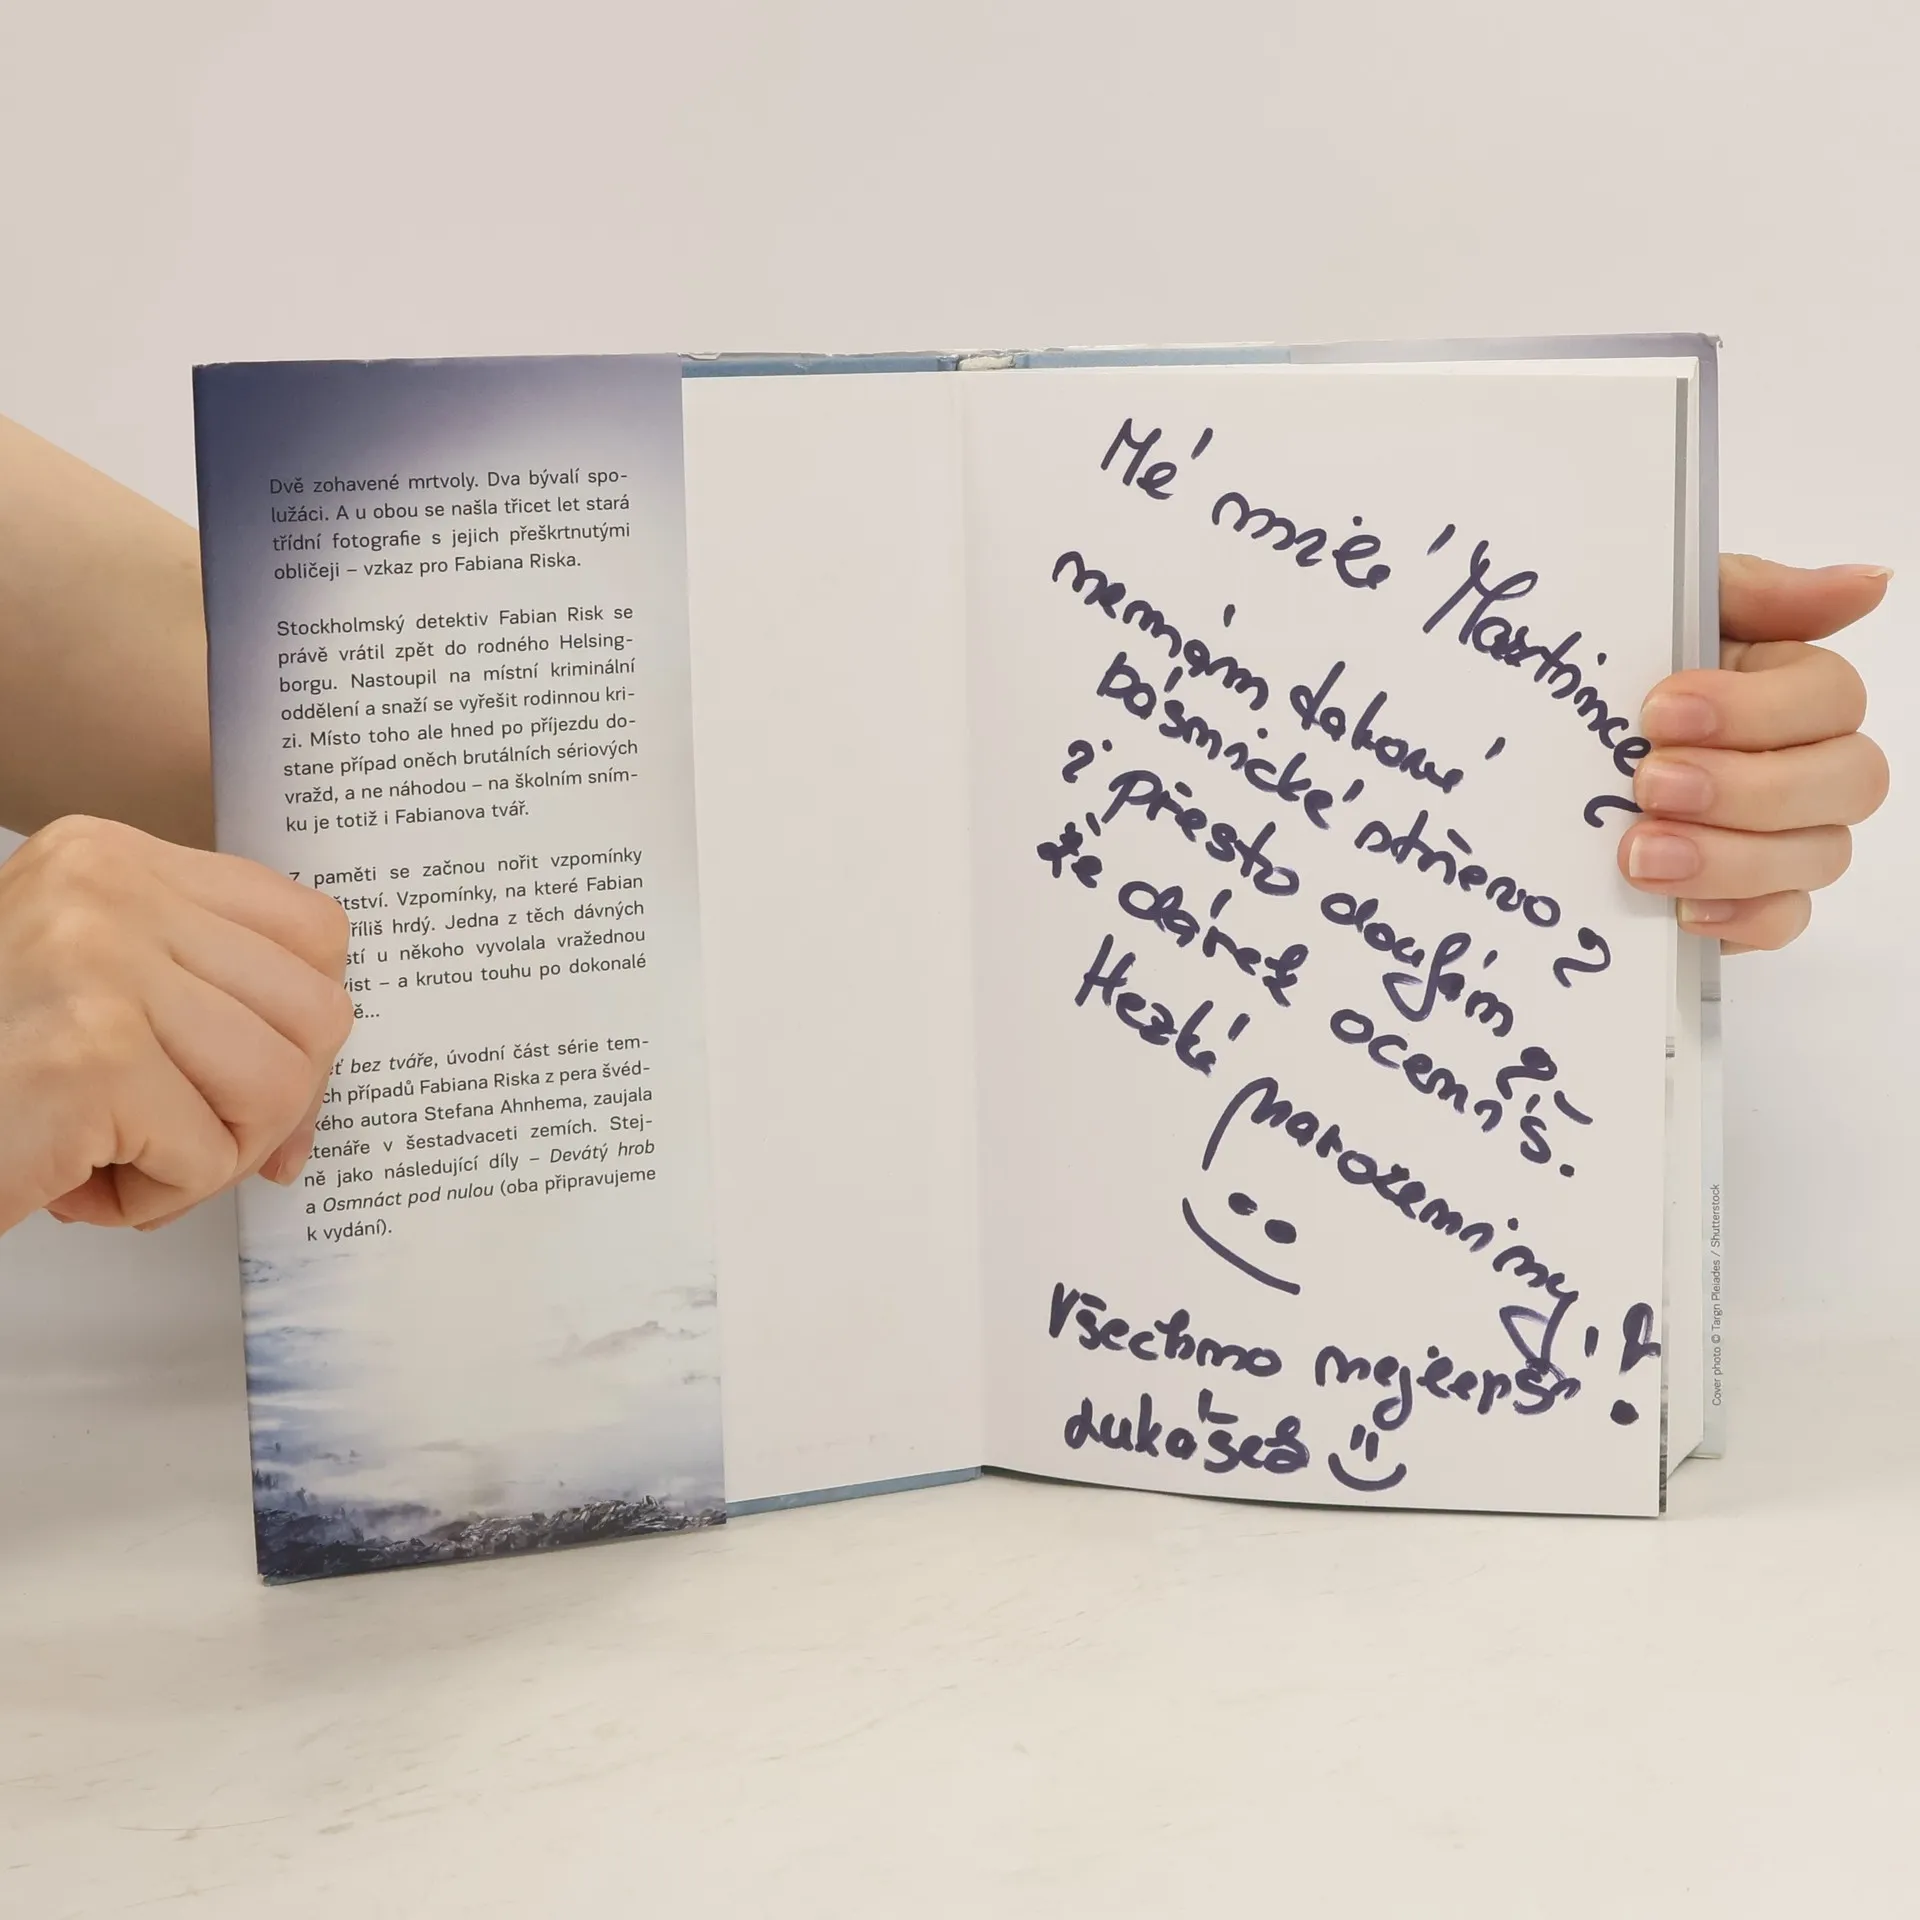 Dvě zohavené mrtvoly. Dva bývalí spo-
lužáci. A u obou se našla třicet let stará
třídní fotografie s jejich přeškrtnutými
obličeji – vzkaz pro Fabiana Riska.
Stockholmský detektiv Fabian Risk se
právě vrátil zpět do rodného Helsing-
borgu. Nastoupil na místní kriminální
oddělení a snaží se vyřešit rodinnou kri-
zi. Místo toho ale hned po příjezdu do-
stane případ oněch brutálních sériových
vražd, a ne náhodou – na školním sním-
ku je totiž i Fabianova tvář.
Z paměti se začnou nořit vzpomínky
tství. Vzpomínky, na které Fabian
říliš hrdý. Jedna z těch dávných
stí u někoho vyvolala vražednou
vist – a krutou touhu po dokonalé
ě...
ť bez tváře, úvodní část série tem-
ch případů Fabiana Riska z pera švéd-
kého autora Stefana Ahnhema, zaujala
čtenáře v šestadvaceti zemích. Stej-
ně jako následující díly – Devátý hrob
a Osmnáct pod nulou (oba připravujeme
k vydání).
Mé milé Martince,
nemám takové
básnické střevo,
i přesto doufám,
že dárek oceníš.
Hezké narozeniny,
Všechno nejlepší!
Lukášek
Cover photo © Targn Pleiades / Shutterstock